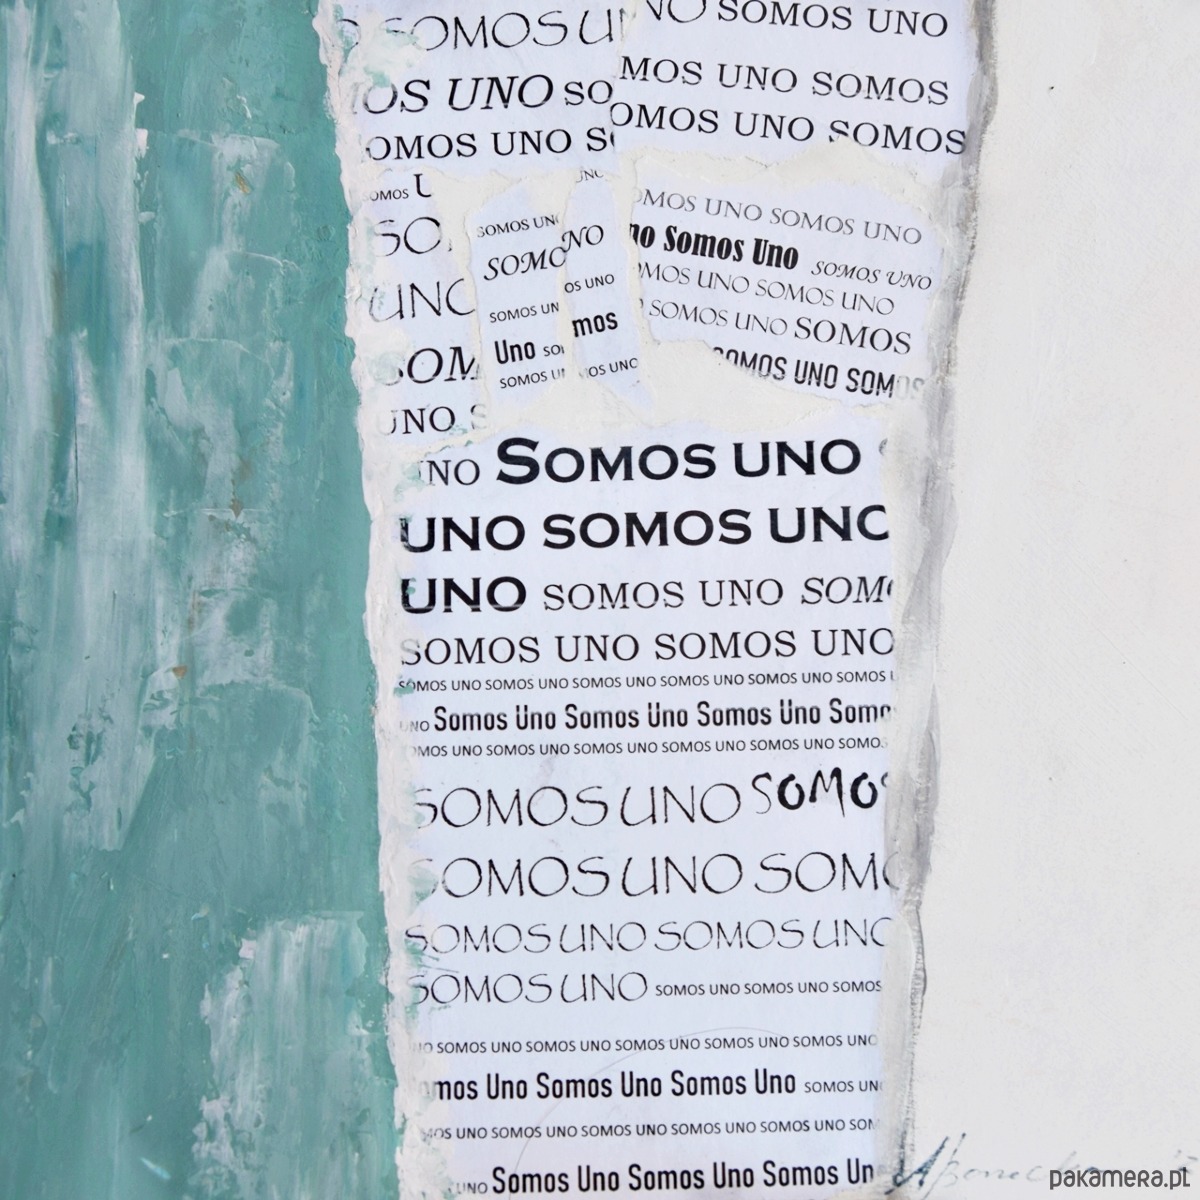 SOMOS
NO SOMOS UNO
UNO SO
MOS UNO SOMOS
OMOS UNO S
OMOS UNO SOMOS
OMOS U
SO
UNO
SOM
UNO S
SOMOS UNO
SOMO
SOMOS UN
Uno so
SOMOS U
UNO
NO
OS UNO
mos
OS UNO
OMOS UNO SOMOS UNO
no Somos Uno SOMOS UNO
OMOS UNO SOMOS UNO
SOMOS UNO SOMOS
SOMOS UNO SOMOS
UNO SOMOS UNO
UNO SOMOS UNO
UNO SOMOS UNO SOM
SOMOS UNO SOMOS UNO
SOMOS UNO SOMOS UNO SOMOS UNO SOMOS UNO SOMOS UNO SOMOS
UNO Somos Uno Somos Uno Somos Uno Somo
OMOS UNO SOMOS UNO SOMOS UNO SOMOS UNO SOMOS UNO SOMOS
SOMOS UNO SOMOS
SOMOS UNO SOMO
SOMOS UNO SOMOS UNO
SOMOS UNO SOMOS UNO SOMOS UNO SOMOS
NO SOMOS UNO SOMOS UNO SOMOS UNO SOMOS UNO SOMOS UNO
mos Uno Somos Uno Somos Uno SOMOS UN
MOS UNO SOMOS UNO SOMOS UNO SOMOS UNO SOMOS UNO SOM
UNO Somos Uno Somos Uno Somos Un
pakamera.pt